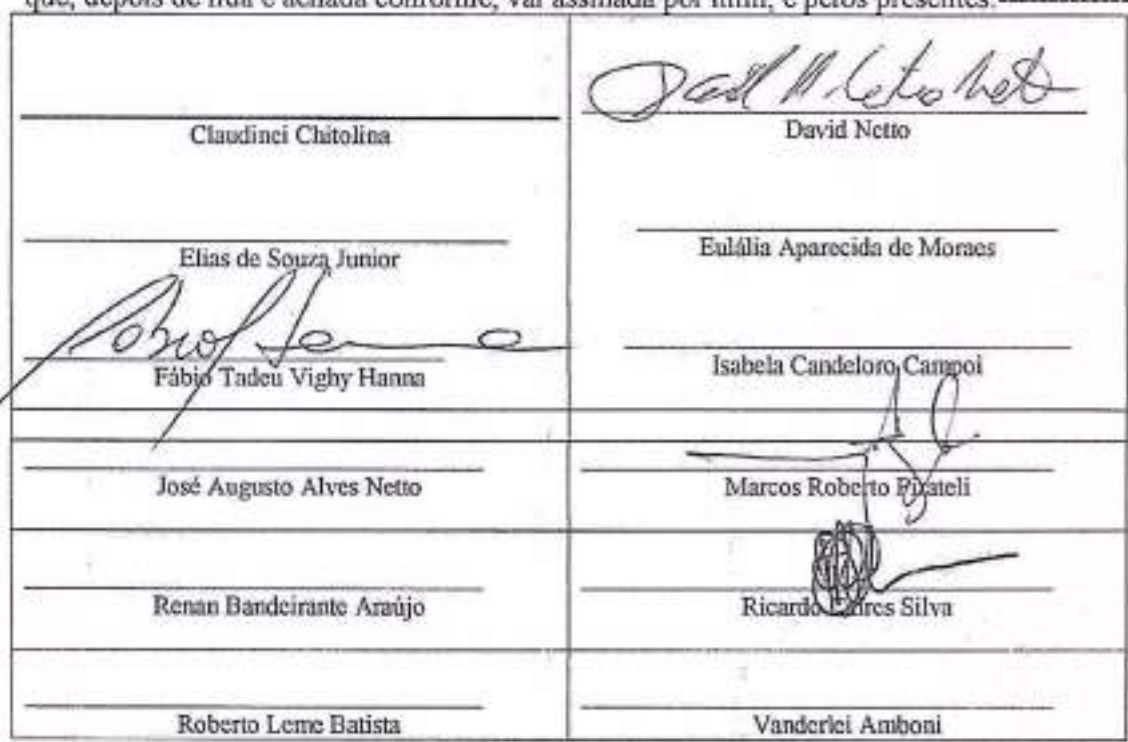 que, depois de lida e achada conforme, vai assinada por mim, e pelos presentes.
Claudinei Chitolina
David Netto
Elias de Souza Junior
Eulália Aparecida de Moraes
Fábio Tadeu Vighy Hanna
Isabela Candeloro Campoi
José Augusto Alves Netto
Marcos Roberto Pirateli
Renan Bandeirante Araújo
Ricardo Silva
Roberto Leme Batista
Vanderlei Amboni